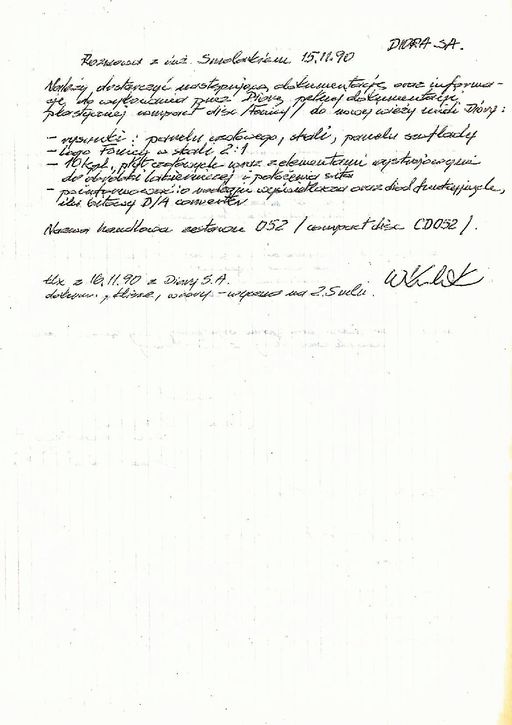 DIORA SA.
Rozmowa z inż. Smolarkiem 15.11.90
Należy dostarczyć następującą dokumentację oraz informa-
cje do wykonania przez Diorę pełnej dokumentacji
plastycznej compact disc Fonicy / do nowej wieży midi Diory:
- rysunki: panelu czołowego, skali, panelu szuflady
- logo Fonicy w skali 2:1
- 10 kpl. płyt czołowych wraz z elementami wystrojowymi
do obróbki lakierniczej i położenia sita
- poinformować: o rodzaju wyświetlacza oraz diod funkcyjnych,
ilu bitowy D/A converter
Nazwa handlowa zestawu 052 / compact disc CD052 /.
tlx z 16.11.90 z Diory S.A.
dokum., klisze, wzory -